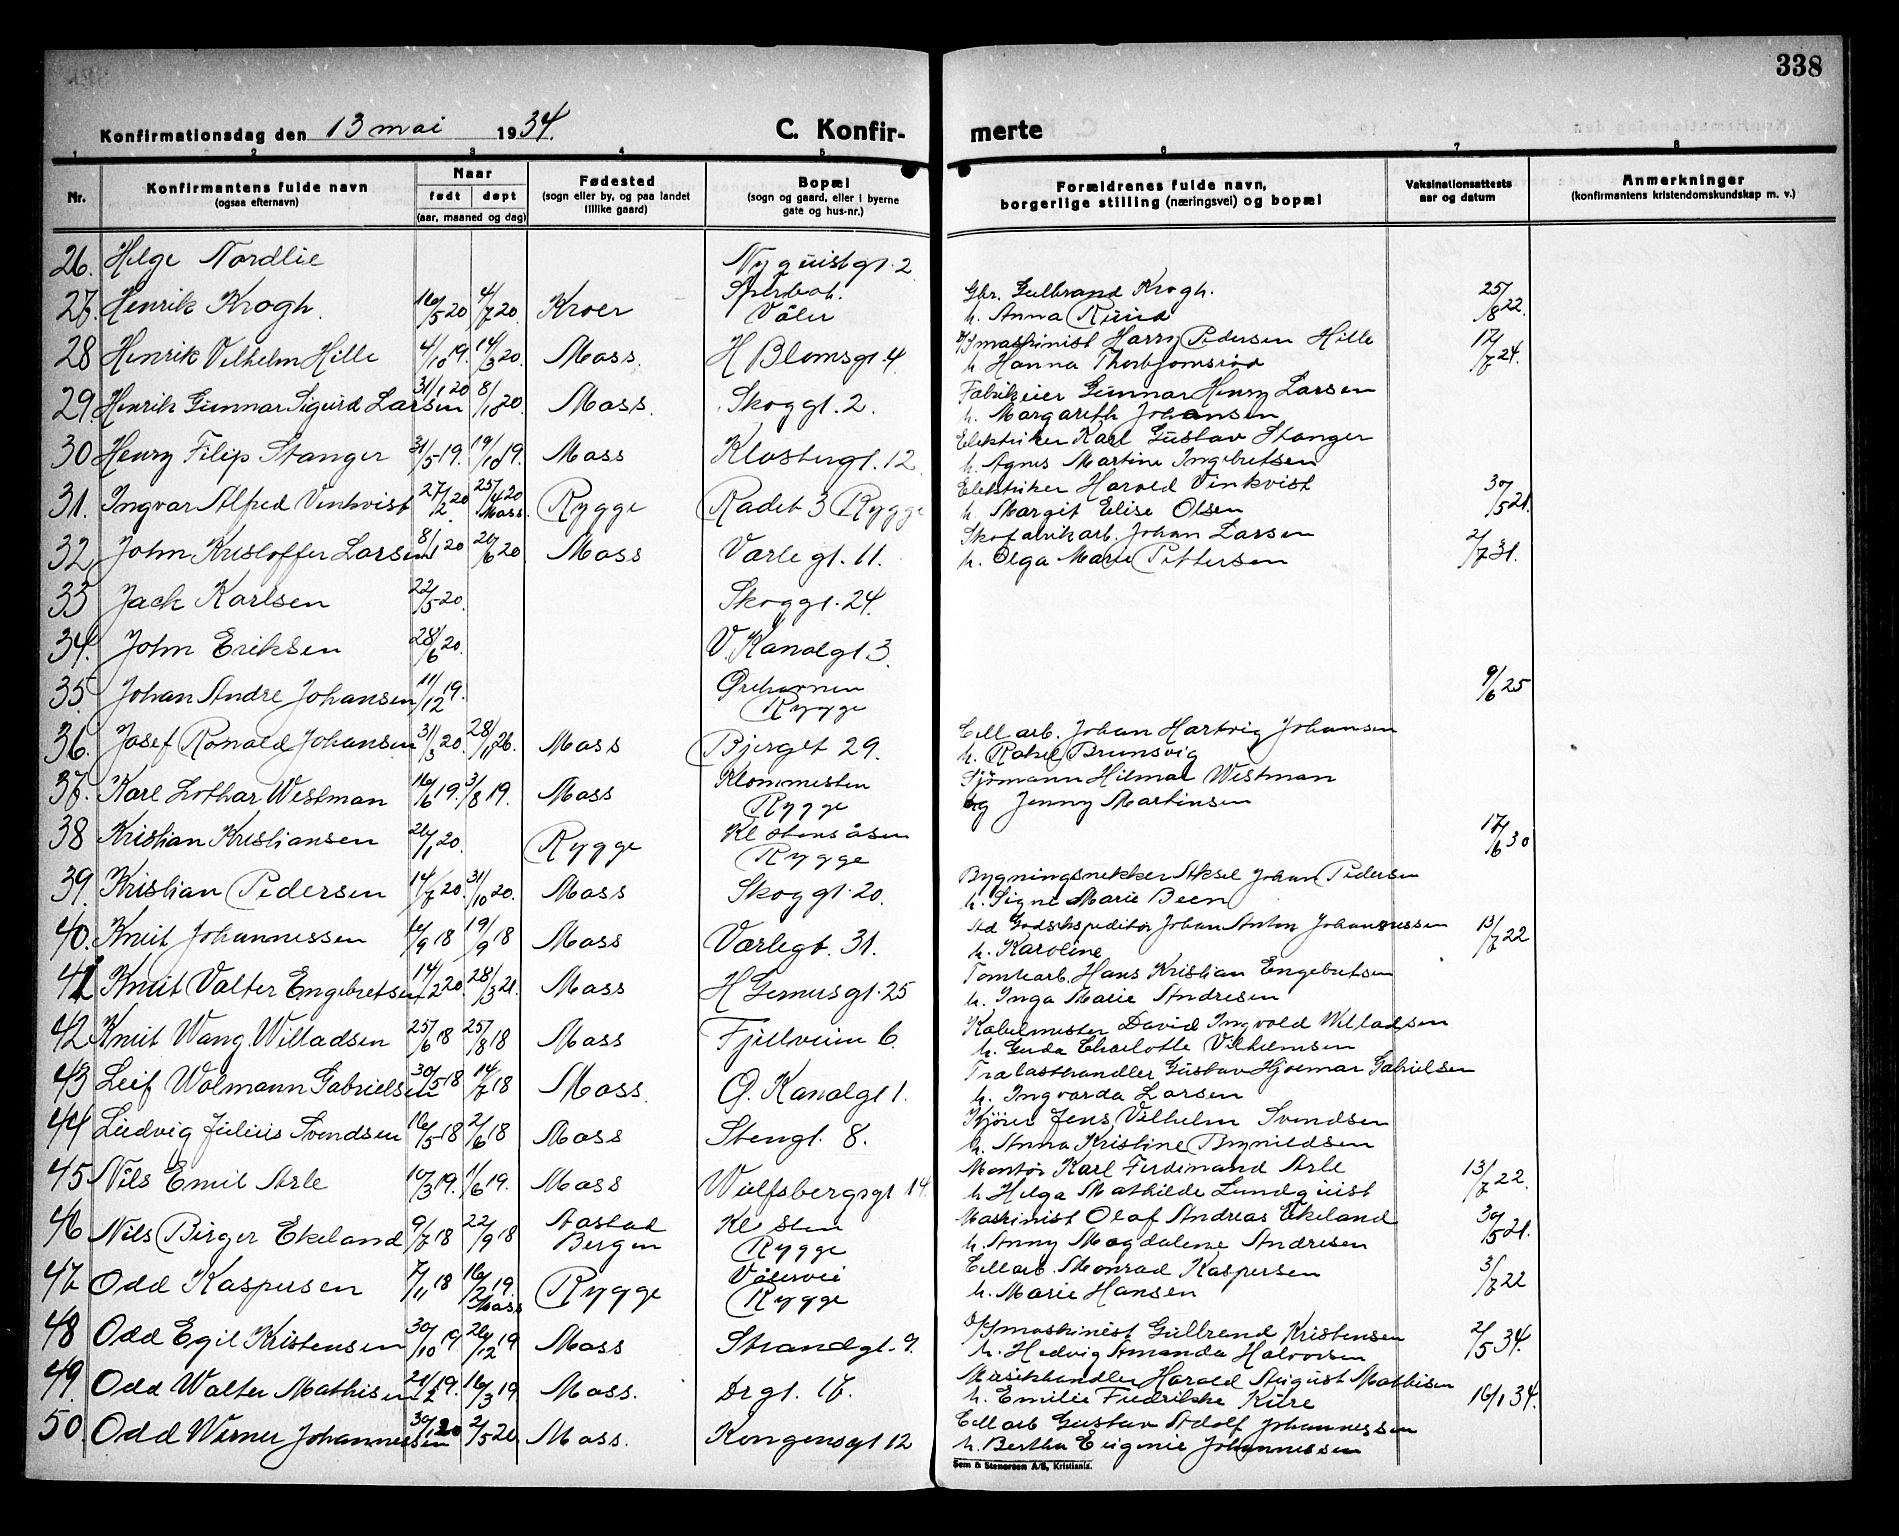 338
Konfirmationsdag den 13 mai 1934.
C. Konfir-
merte
1 2 3 4 5 6 7 8
Nr.
Konfirmantens fulde navn
(ogsaa efternavn)
Naar
født døpt
(aar, maaned og dag)
Fødested
(sogn eller by, og paa landet
tillike gaard)
Bopæl
(sogn og gaard, eller i byerne
gate og hus-nr.)
Forældrenes fulde navn,
borgerlige stilling (næringsvei) og bopæl
Vaksinationsattests
aar og datum
Anmerkninger
(konfirmantens kristendomskundskap m. v.)
26. Helge Nordlie Nyquistgt. 2
27. Henrik Krogh. 16/5 20 4/7 20. Kroer Våler Gbr. Gulbrand Krogh. 25/8 22.
h. Anna Ruud
28 Henrik Vilhelm Hille 4/10 19. 14/3 20. Moss. H Blomsgt. 4 maskinist Harry Pedersen Hille 17/7 24.
h. Hanna Thorbjørnsrød
29. Henrik Gunnar Sigurd Larsen 31/1 20 8/10 20. Moss. Skoggt. 2. Fabrikeier Gunnar Henry Larsen
h. Margareth Johansen
30 Henry Filip Stanger 31/5 19. 19/10 19. Moss Klostergt. 12 Elektriker Karl Gustav Stanger
h. Agnes Martine Ingebretsen
31. Ingvar Alfred Vinkvist 27/2 20 25/4 20 Moss Rygge Radet 3 Rygge Elektriker Harald Vinkvist 30/5 21.
h. Margit Elise Olsen
32 John Kristoffer Larsen 8/1 20 20/6 20 Moss Varlegt. 11. Skofabrikarb. Johan Larsen 2/7 31.
h. Olga Marie Pettersen
33 Jack Karlsen 22/5 20. Skoggt. 24.
34. John Eriksen 28/6 20. V. Kanalgt 3.
35. Johan Andre Johansen 11/12 19. Ørehavnen 9/6 25
Rygge
36. Josef Ronald Johansen 31/3 20. 28/11 26. Moss Bjerget 29. Cell.arb. Johan Hartvig Johansen
h. Rakel Brunsvig
37. Karl Lothar Westman 16/6 19. 3/8 19. Moss Klommesten Sjømann Hilmar Westman
Rygge og Jenny Martinsen
38 Kristian Kristiansen 26/1 20. Rygge Kl Stensåsen 17/6 30
Rygge
39. Kristian Pedersen 14/7 20. 31/10 20. Moss Skoggt. 20. Bygningssnekker Aksel Johan Pedersen
h. Signe Marie Been
40. Knut Johannessen 19/9 18 Moss Varlegt. 31. Godsekspeditør Johan Anton Johannessen 13/7 22
h. Karoline
41 Knut Valter Engebretsen 14/2 20 28/3 21. Moss H Gernersgt. 25 Tomtearb. Hans Kristian Engebretsen
h. Inga Marie Andresen
42 Knut Wang Willadsen 25/6 18 25/8 18 Moss Fjellveien 6. Kabelmester David Ingvald Willadsen
h. Guda Charlotte Vilhelmsen
43 Leif Wolmann Gabrielsen 30/5 18 14/7 18 Moss. Ø. Kanalgt 1. Trælasthandler Gustav Hjalmar Gabrielsen
h. Ingvarda Larsen
44 Ludvig Julius Svendsen 16/5 18 2/6 18 Moss Stengt. 8. Kjører Jens Vilhelm Svendsen
h. Anna Kristine Brynildsen
45 Nils Emil Arle 10/3 19. 1/6 19. Moss Wulfsbergsgt. 14. Montør Karl Ferdinand Arle 13/7 22.
h. Helga Mathilde Lundquist
46 Nils Birger Ekeland 9/7 18 22/9 18 Aastad Kl Sten Maskinist Olaf Andreas Ekeland 30/5 21.
Bergen Rygge h. Anny Magdalene Andresen
47 Odd Kaspersen 7/11 18 16/2 19. Moss Rygge Vålervei Cellarb. Monrad Kaspersen 3/7 22
Rygge h. Marie Hansen
48 Odd Egil Kristensen 30/10 19 26/12 19 Moss Strandgt. 9. maskinist Gulbrand Kristensen 2/5 34.
h. Hedvig Amanda Halvorsen
49. Odd Walter Mathisen 21/2 19. 16/3 19 Moss. Drgt. 17. Musikhandler Harald August Mathisen 16/1 34.
h. Emilie Fredrikke Kure
50 Odd Werner Johannessen 30/1 20 2/5 20 Moss. Kongensgt 12 Cellarb Gustav Adolf Johannessen
h. Bertha Eugenie Johannessen
Sem & Stenersen A/S, Kristiania.